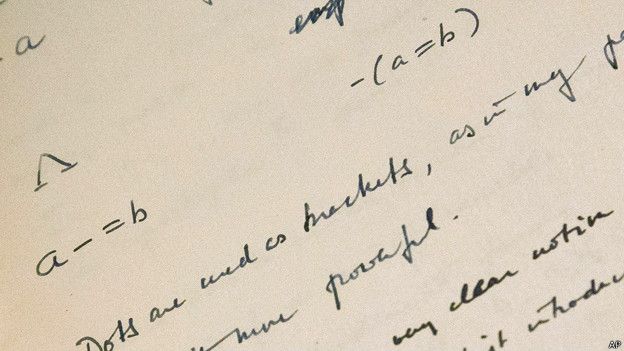 a
- (a = b)
a - = b
Dots are used as brackets, as in my
more powerful.
very clear notion
AP